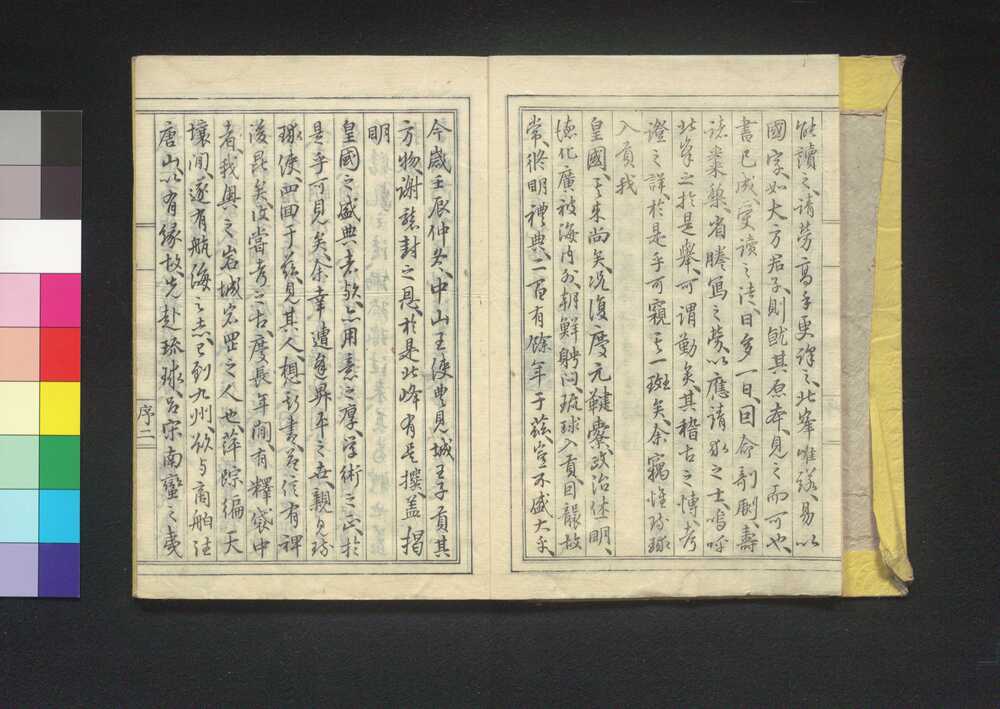 能讀之請勞高手更譯之此峯唯諾易以
國字如大方君子則就其原本見之而可也
書已成受讀之法日多一日回命剞劂壽
諸棗梨省謄寫之勞以應請求之士嗚呼
此峯之於是擧可謂勤矣其稽古之博考
證之詳於是乎可窺其一斑矣余竊惟琉球
入貢我
皇國其來尚矣況復慶元鞬櫜政治休明
德化廣被海內外朝鮮聘問琉球入貢因襲故
常修明禮典二百有餘年于茲豈不盛大乎
今歲壬辰仲冬中山王使豊見城王子貢其
方物謝襲封之恩於是此峰有是撰蓋揭
明
皇國之盛典者歟亦用意之厚學術之正於
是乎可見矣余幸遭身昇平之世親見琉
球使四回于茲見其人想彷書益信有裨
後昆矣汝嘗考之古慶長年間有釋袋中
者我奧之岩城宕罡之人也萍踪徧天
壤間遂有航海之志已到九州欲与商舶往
唐山以有緣故先赴琉球呂宋南蠻之夷
序二